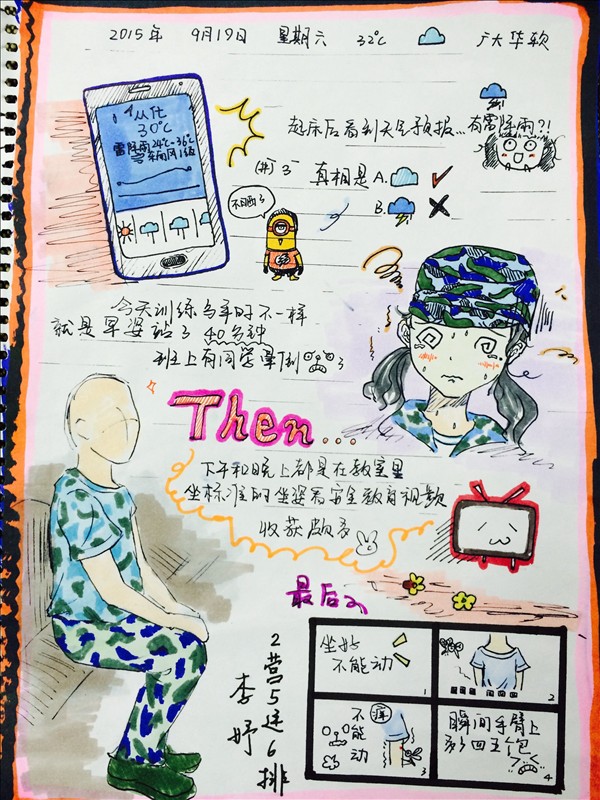 2015年 9月19日 星期六 32℃ 广大华软
从化
30℃
雷阵雨24℃~36℃
东南风1级
起床后看到天气预报...有雷阵雨?!
(#) 3 真相是 A. ✓
B. ✗
不晒了
今天训练与平时不一样
就是早姿站了40分钟
班上有同学晕倒了
Then...
下午和晚上都是在教室里
坐标准的坐姿看安全教育视频
收获颇多
最后
2营5连6排
李妤
坐好
不能动
1
2
不能动
痒
3
瞬间手臂上
多了四五个包
4